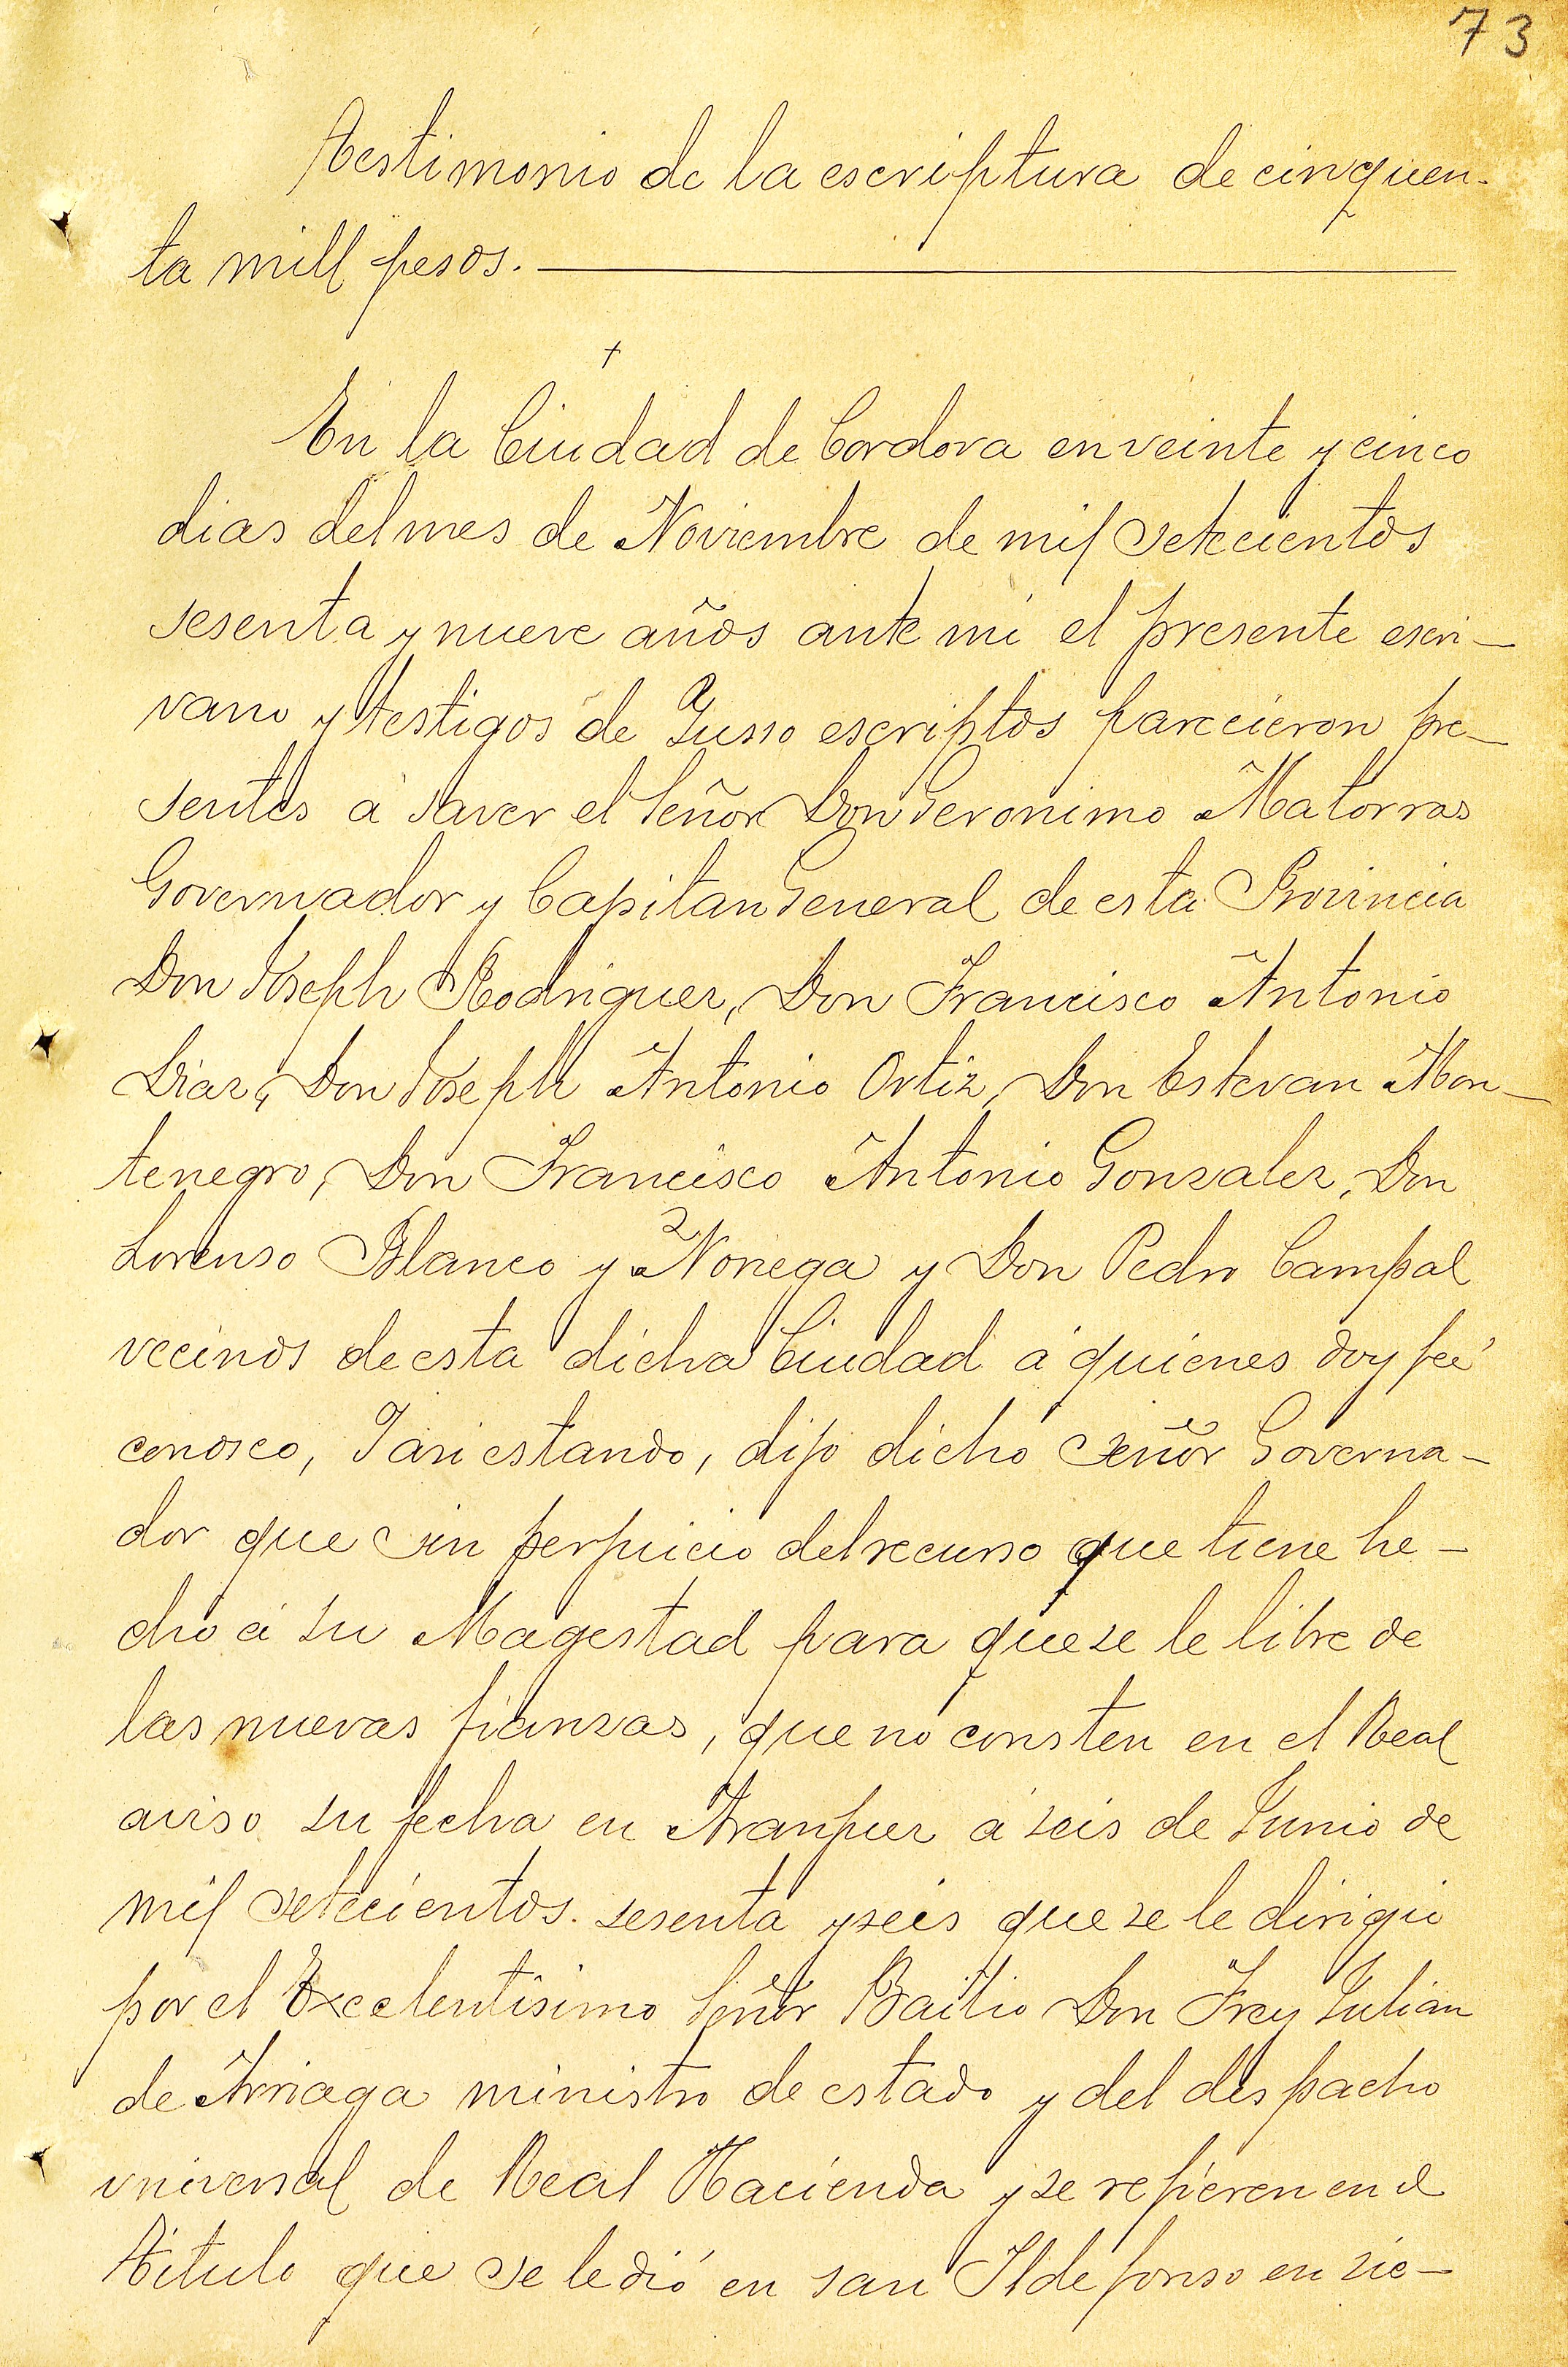 73
Testimonio de la escriptura de cinquen-
ta mill pesos.
+
En la Ciudad de Cordova en veinte y cinco
dias del mes de Noviembre de mil setecientos
sesenta y nueve años ante mi el presente escri-
vano y testigos de Yusso escriptos parecieron pre-
sentes á saver el Señor Don Geronimo Matorras
Governador y Capitan General de esta Provincia
Don Joseph Rodriguez, Don Francisco Antonio
Diaz, Don Joseph Antonio Ortiz, Don Estevan Mon-
tenegro, Don Francisco Antonio Gonzalez, Don
Lorenso Blanco y Noriega y Don Pedro Campal
vecinos de esta dicha Ciudad á quienes doy feé
conosco, Y asi estando, dijo dicho Señor Governa-
dor que sin perjuicio del recurso que tiene he-
cho á su Magestad para que se le libre de
las nuevas fianzas, que no consten en el Real
aviso su fecha en Aranjuez á seis de Junio de
mil setecientos sesenta y seis que se le dirigió
por el Excelentisimo Señor Bailio Don Frey Julian
de Arriaga ministro de estado y del despacho
universal de Real Hacienda y se refieren en el
Titulo que se le dió en san Ildefonso en sie-